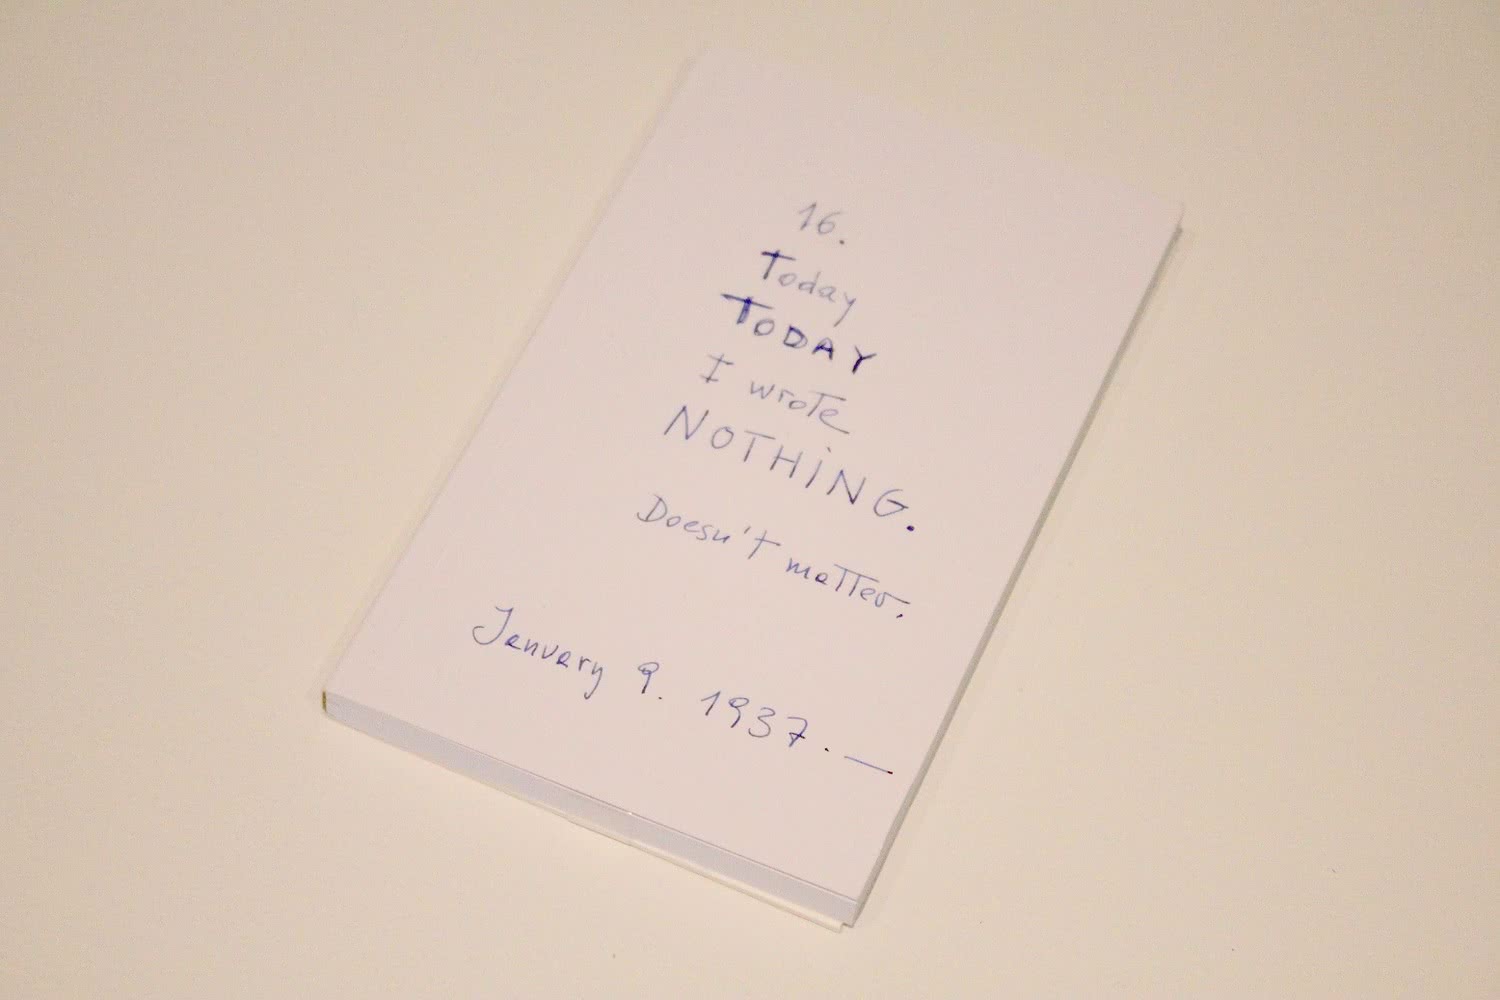 16.
Today
TODAY
I wrote
NOTHING.
Doesn't matter.
January 9. 1937. —